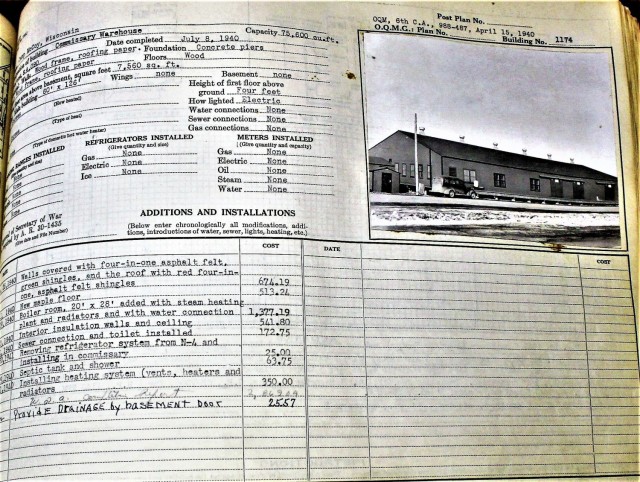 Post Plan No.
OQM, 6th C.A., 988-487, April 15, 1940
O.Q.M.G.: Plan No.
Building No. 1174
McCoy, Wisconsin
Commissary Warehouse
Capacity 75,600 cu.ft.
Date completed July 8, 1940
Wood frame, roofing paper. Foundation Concrete piers
frame, roofing paper Floors Wood
above basement, square feet 7,560 sq. ft.
60' x 126' Wings none Basement none
Height of first floor above
ground Four feet
(How heated)
How lighted Electric
Water connections None
Sewer connections None
Gas connections None
(Type of domestic hot water heater)
RANGES INSTALLED
REFRIGERATORS INSTALLED
(Give quantity and size)
METERS INSTALLED
(Give quantity and capacity)
Gas None
Electric None
Ice None
Gas None
Electric None
Oil None
Steam None
Water None
None
of Secretary of War
by A. R. 30-1435
(Give date and File Number)
ADDITIONS AND INSTALLATIONS
(Below enter chronologically all modifications, addi-
tions, introductions of water, sewer, lights, heating, etc.)
COST DATE COST
Walls covered with four-in-one asphalt felt,
green shingles, and the roof with red four-in-
one, asphalt felt shingles 674.19
New maple floor 513.24
Boiler room, 20' x 28' added with steam heating
plant and radiators and with water connection 1,377.19
Interior insulation walls and ceiling 541.80
Sewer connection and toilet installed 172.75
Removing refrigerator system from N-4 and
Installing in commissary 25.00
Septic tank and shower 63.75
Installing heating system (vents, heaters and
radiators 350.00
Provide Drainage by basement Door 25.57